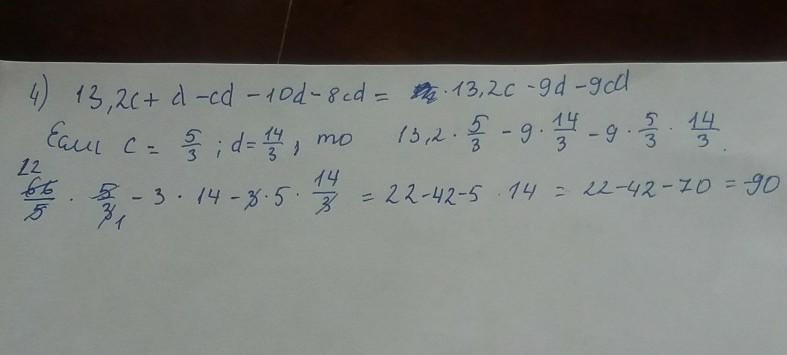 4) 13,2c + d - cd - 10d - 8cd = 13,2c - 9d - 9cd
Если c = 5/3 ; d = 14/3, то 13,2 · 5/3 - 9 · 14/3 - 9 · 5/3 · 14/3.
22
66/5 · 5/3 1 - 3 · 14 - 3 · 5 · 14/3 = 22 - 42 - 5 · 14 = 22 - 42 - 70 = -90